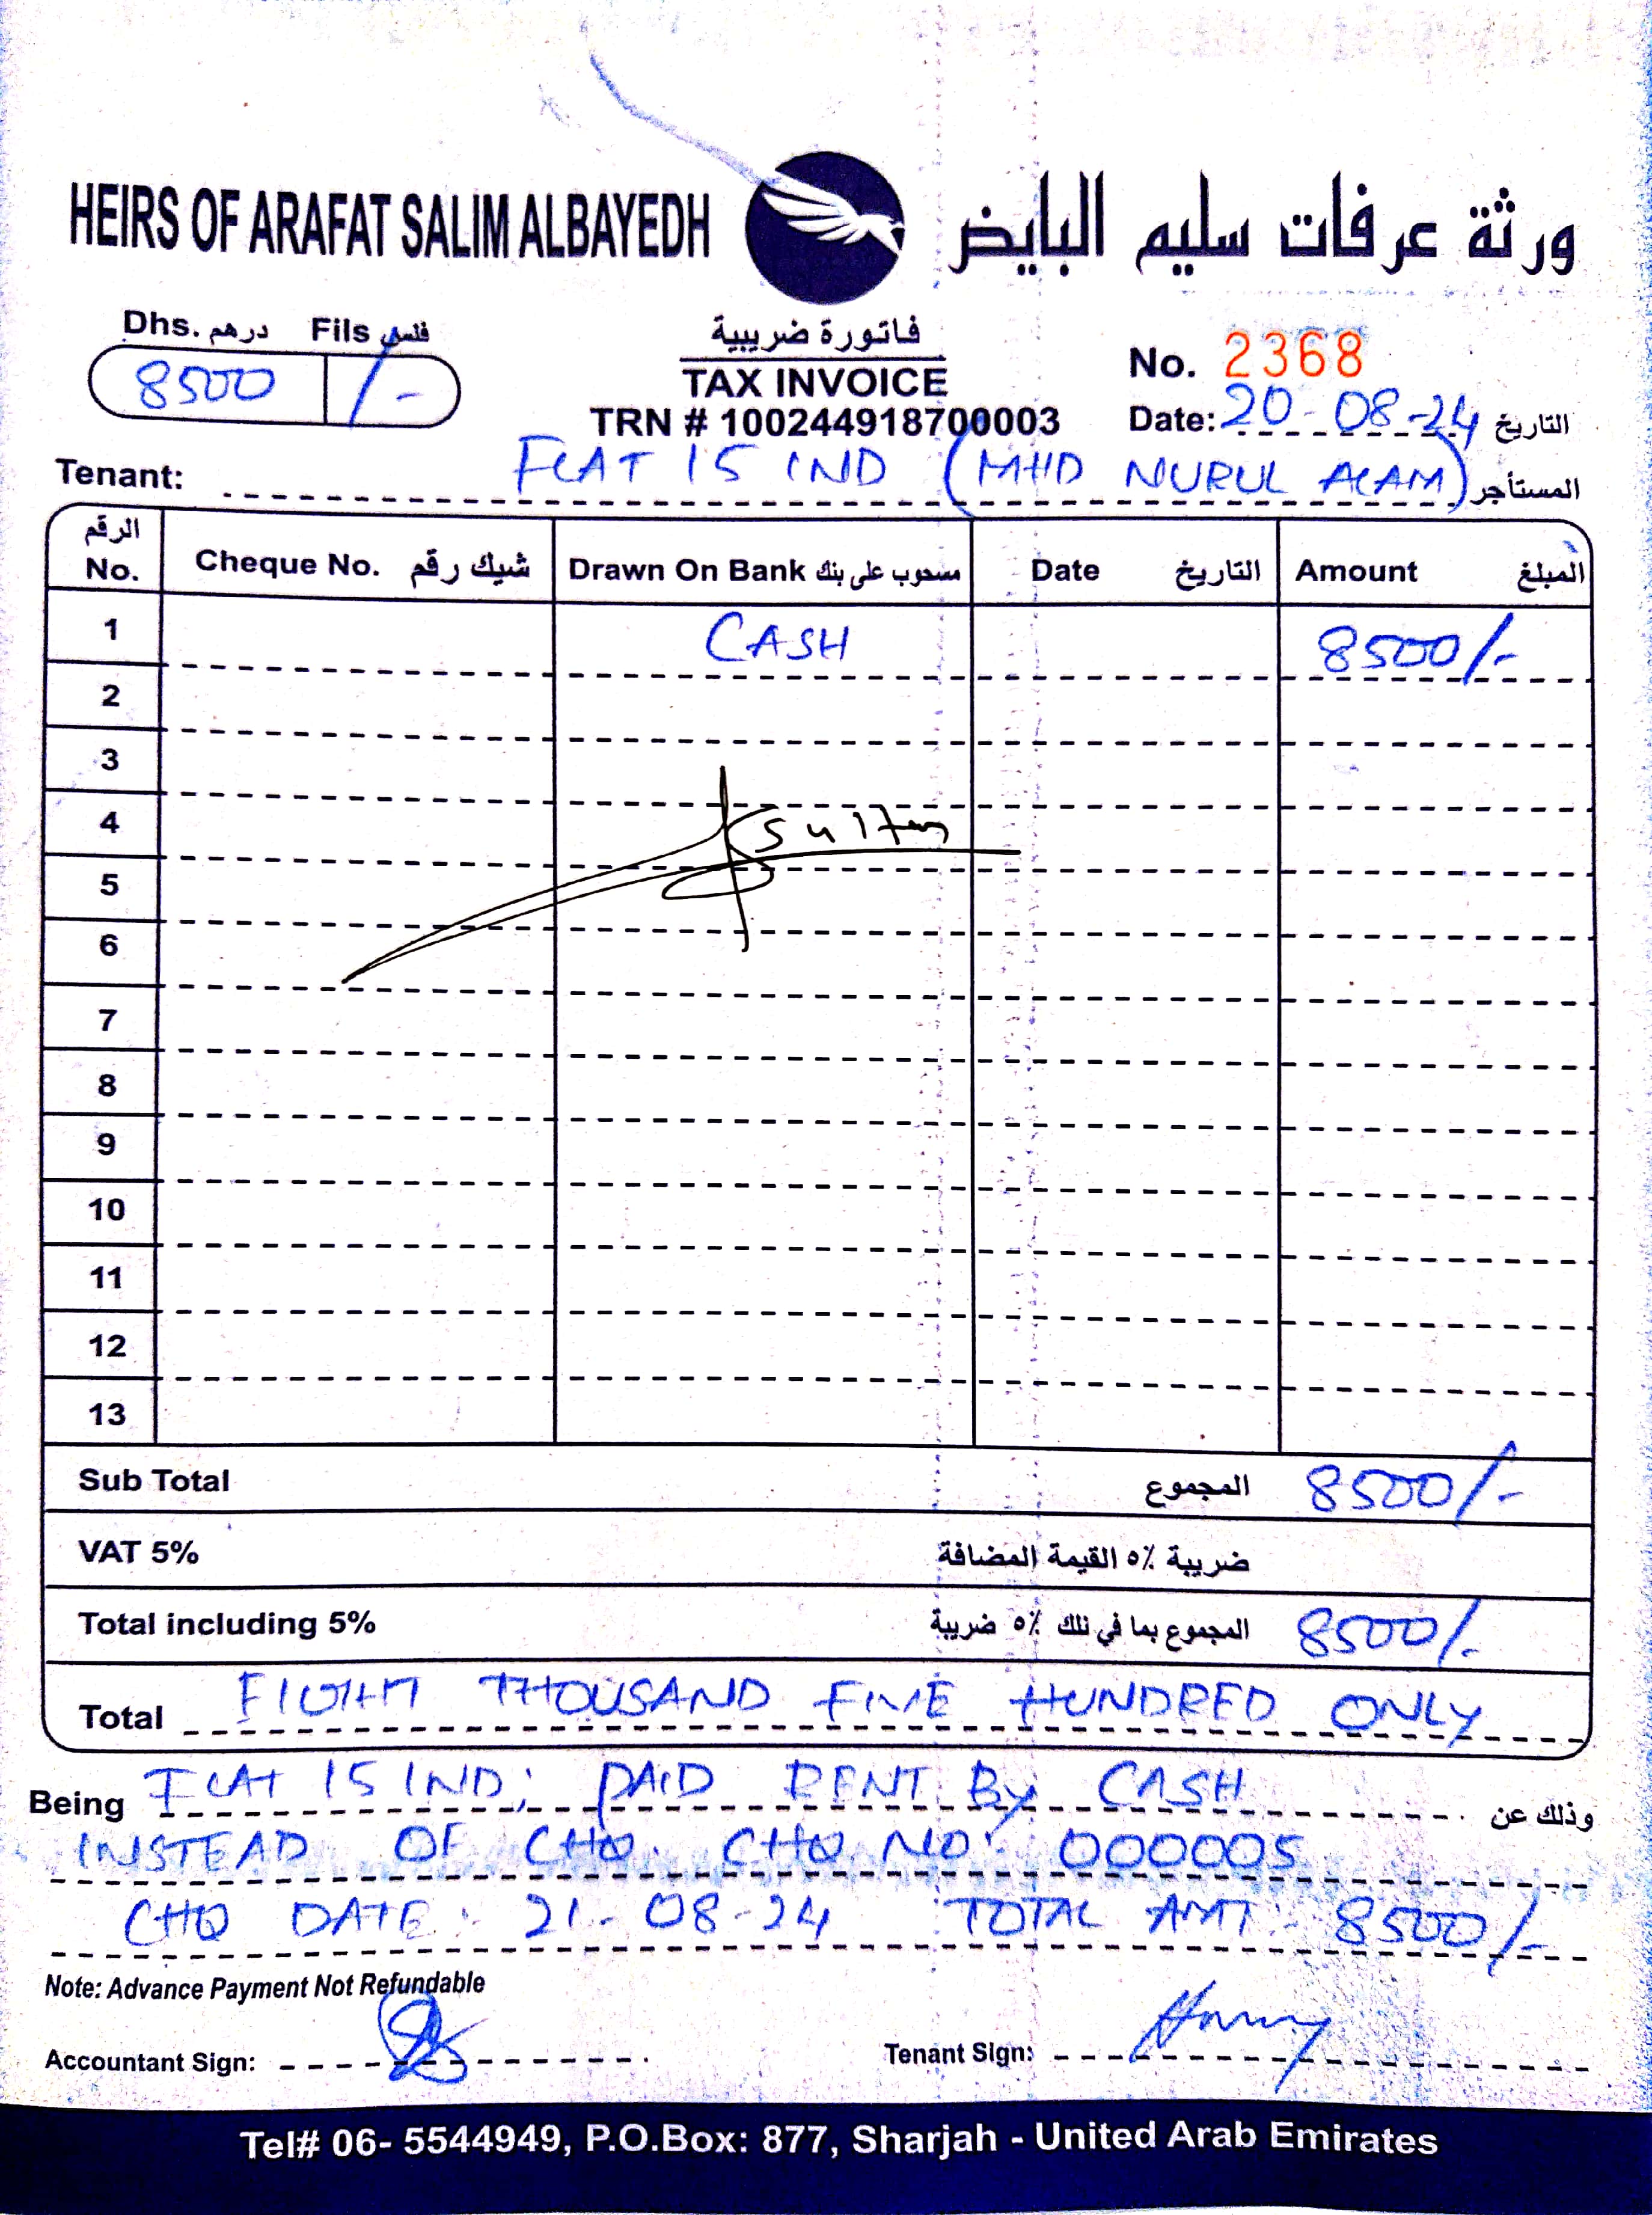 HEIRS OF ARAFAT SALIM ALBAYEDH ورثة عرفات سليم البايض
Dhs. درهم Fils فلس
8500 /-
فاتورة ضريبية
TAX INVOICE
TRN # 100244918700003
No. 2368
Date: 20-08-24 التاريخ
Tenant: FLAT 15 IND (MHD NURUL ALAM) المستأجر
الرقم No. Cheque No. شيك رقم Drawn On Bank مسحوب على بنك Date التاريخ Amount المبلغ
1 CASH 8500/-
2
3
4 Sultan
5
6
7
8
9
10
11
12
13
Sub Total المجموع 8500/-
VAT 5% ضريبة ٥٪ القيمة المضافة
Total including 5% المجموع بما في ذلك ٥٪ ضريبة 8500/-
Total EIGHT THOUSAND FIVE HUNDRED ONLY
Being FLAT 15 IND; PAID RENT By CASH وذلك عن
INSTEAD OF CHQ. CHQ NO: 000005
CHQ DATE: 21-08-24 TOTAL AMT: 8500/-
Note: Advance Payment Not Refundable
Accountant Sign: Tenant Sign:
Tel# 06- 5544949, P.O.Box: 877, Sharjah - United Arab Emirates